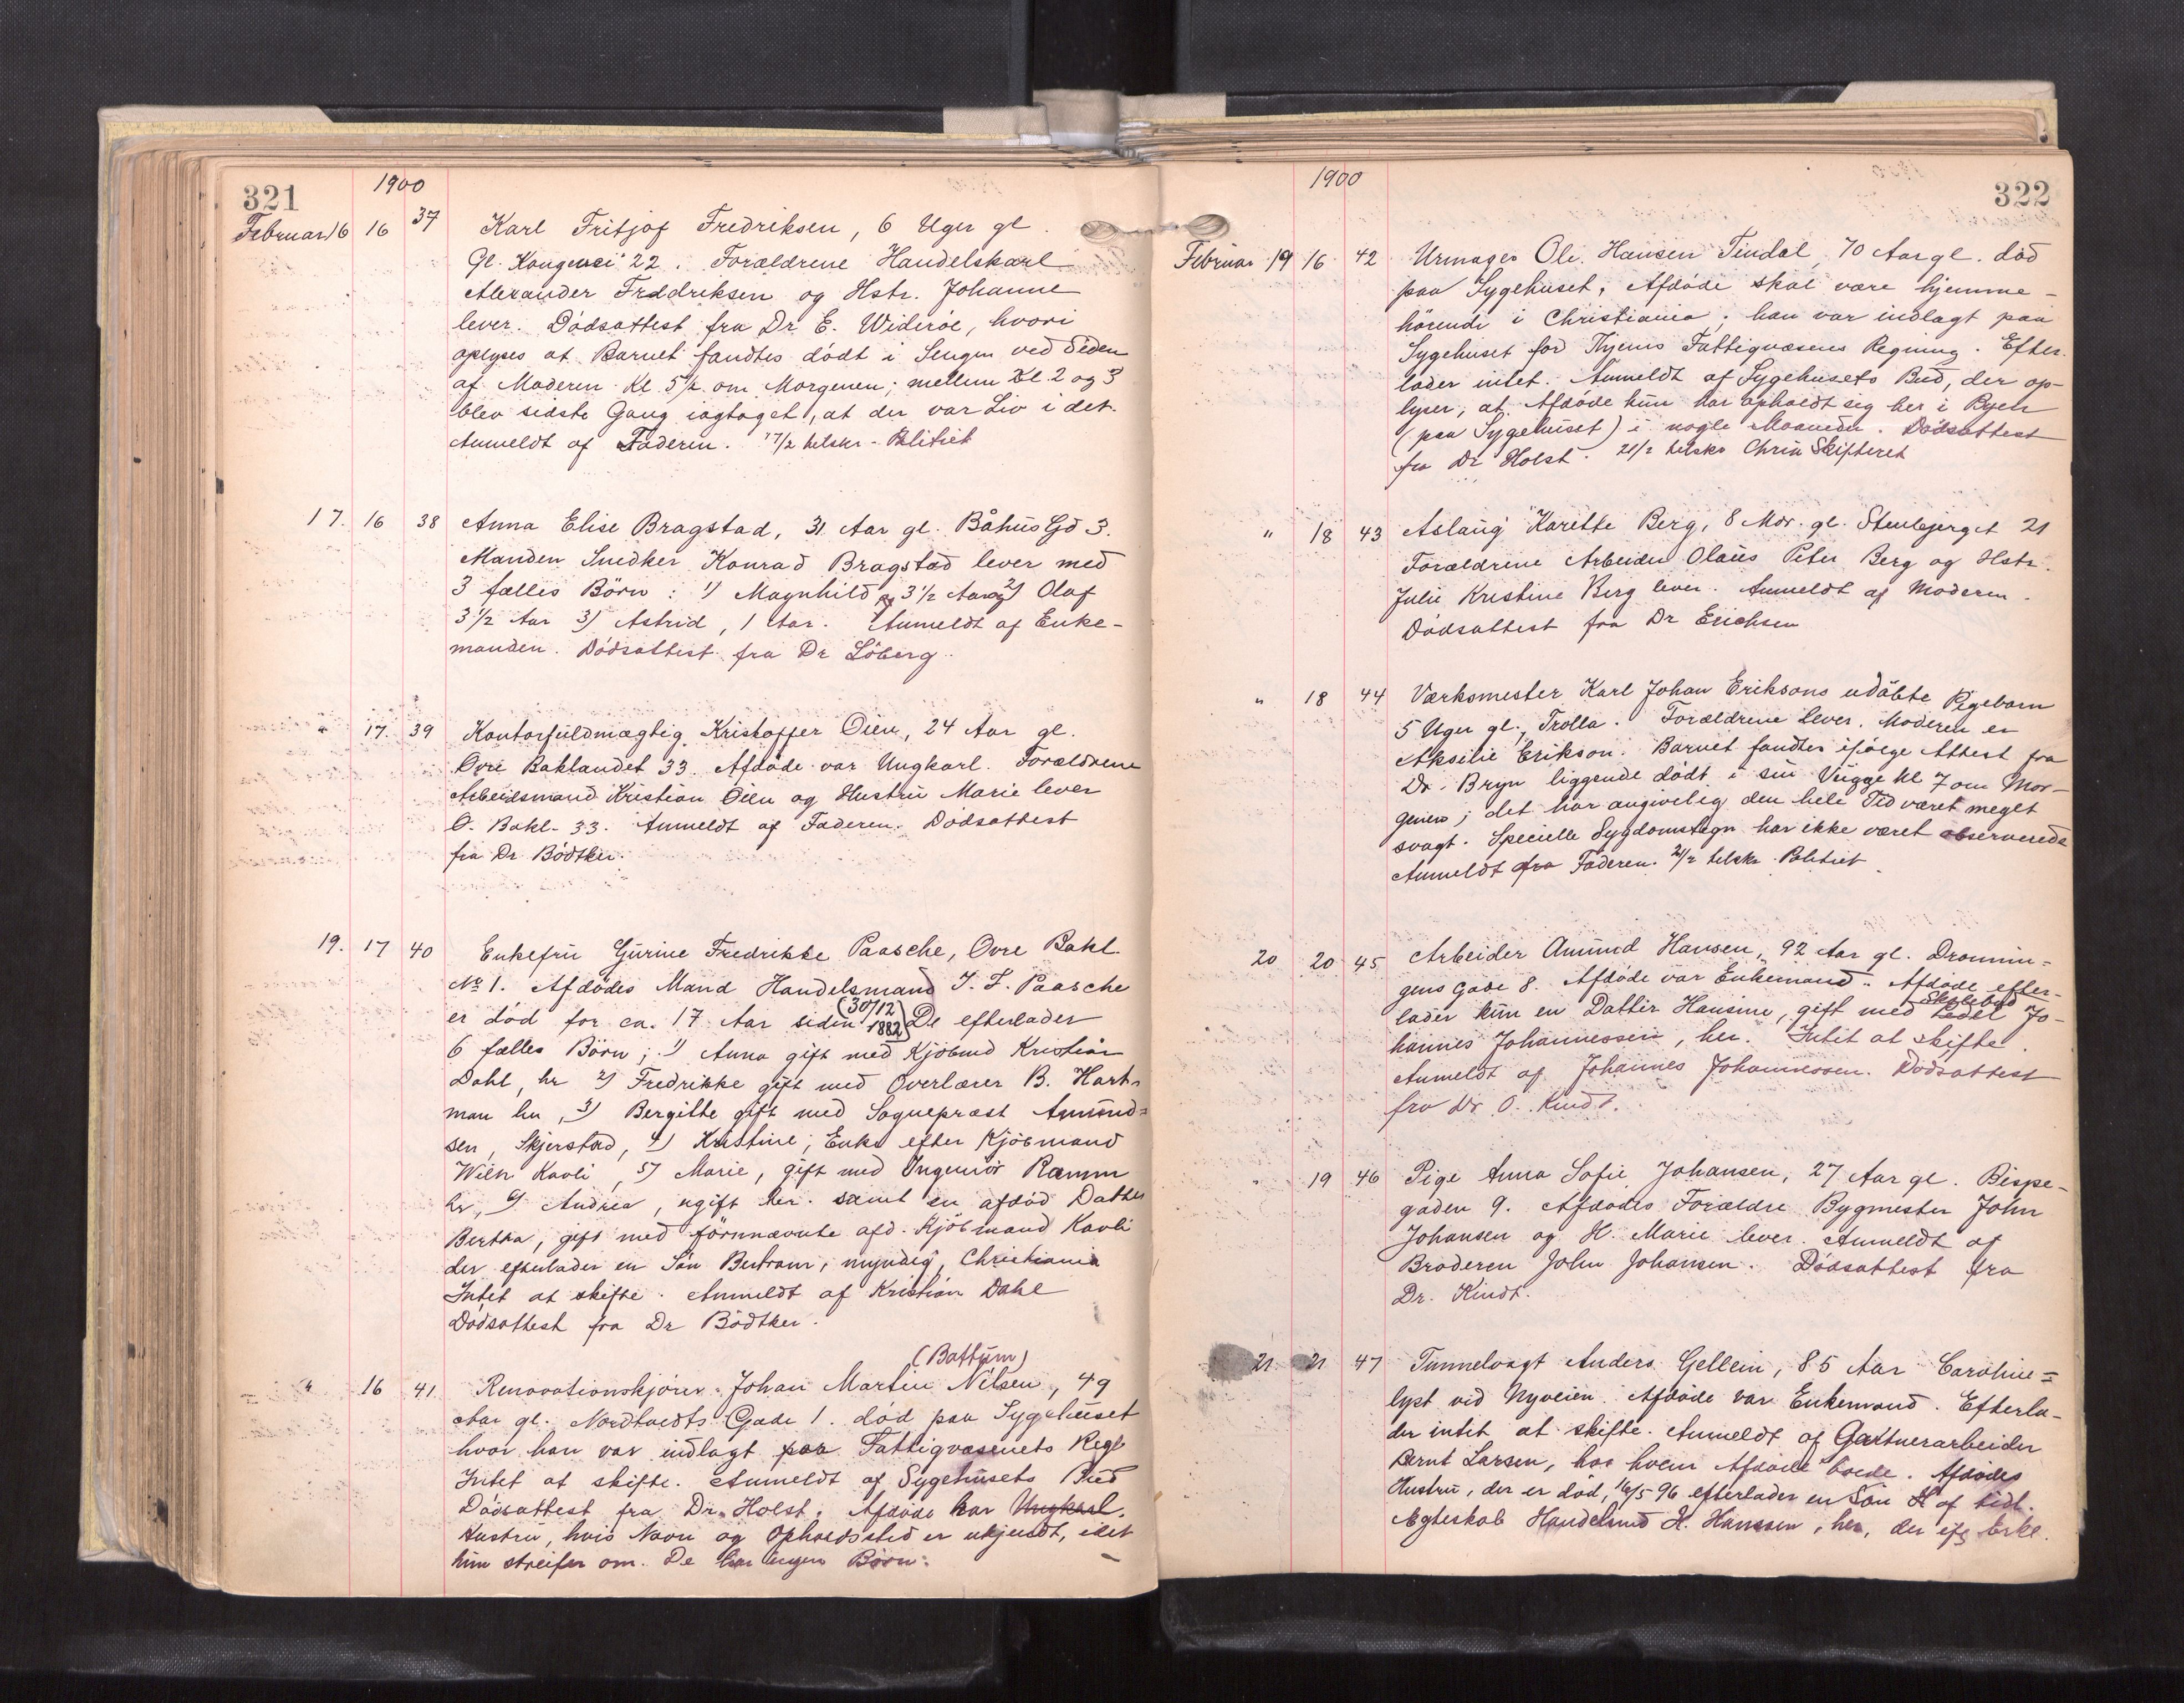 321
1900
Februar 16 16 37 Karl Fritjof Fredriksen, 6 Uger gl.
Gl. Kongevei 22. Forældrene Handelskarl
Alexander Fredriksen og Hstr. Johanne
lever. Dödsattest fra Dr E. Wideröe, hvori
oplyses at Barnet fandtes dödt i Sengen ved Siden
af Moderen Kl. 5½ om Morgenen; mellem Kl. 2 og 3
blev sidste Gang iagttaget, at der var Liv i det.
Anmeldt af Faderen. 17/2 tilskr. Politiet
17. 16 38 Anna Elise Bragstad, 31 Aar gl. Båhus Gd 3.
Manden Snedker Konrad Bragstad lever med
3 fælles Börn: 1) Magnhild 3½ Aar 2) Olaf
3½ Aar 3) Astrid, 1 Aar. Anmeldt af Enke-
manden. Dödsattest fra Dr Löberg.
" 17 39 Kontorfuldmægtig Kristoffer Öien, 24 Aar gl.
Övre Baklandet 33. Afdöde var Ungkarl. Forældrene
Arbeidsmand Kristian Öien og Hustru Marie lever
Ö. Bakl. 33. Anmeldt af Faderen. Dödsattest
fra Dr Bödtker.
19. 17 40 Enkefru Gurine Fredrikke Paasche, Övre Bakl.
No 1. Afdödes Mand Handelsmand J. F. Paasche
er död for ca. 17 Aar siden (30/12 1882) De efterlader
6 fælles Börn; 1) Anna gift med Kjöbmd Kristian
Dahl, her 2) Fredrikke gift med Overlærer B. Hart-
man her, 3) Bergitte gift med Sogneprest Amund-
sen, Skjerstad, 4) Kristine; Enke efter Kjöbmand
Wilh. Kavli, 5) Marie, gift med Ingeniör Ramm
her, 6) Andrea, ugift her. samt en afdöd Datter
Bertha, gift med förnnævnte afd. Kjöbmand Kavli
der efterlader en Sön Bertram, myndig, Christiania
Intet at skifte. Anmeldt af Kristian Dahl
Dödsattest fra Dr Bödtker.
(Battum)
" 16 41 Renovationskjörer Johan Martin Nilsen, 49
Aar gl. Nordtvedts Gade 1. död paa Sygehuset
hvor han var indlagt paa Fattigvæsenets Regn
Intet at skifte. Anmeldt af Sygehusets Bud
Dödsattest fra Dr. Holst. Afdöde har Ungkarl.
Hustru, hvis Navn og Opholdssted er ukjendt, idet
hun streifer om. De har ingen Börn.
322
1900
Februar 19 16 42 Urmager Ole Hansen Tindal, 70 Aar gl. död
paa Sygehuset, Afdöde skal være hjemme-
hörende i Christiania; han var indlagt paa
Sygehuset for Fattigvæsens Regning. Efter-
lader intet. Anmeldt af Sygehusets Bud, der op-
lyser, at Afdöde kun har opholdt sig her i Byen
(paa Sygehuset) i nogle Maaneder. Dödsattest
fra Dr Holst. 21/2 tilskr Chria Skifteret
" 18 43 Aslaug Karette Berg, 8 Mdr. gl. Stenbjerget 21
Forældrene Arbeider Olaus Peter Berg og Hstr.
Julie Kristine Berg lever. Anmeldt af Moderen.
Dödsattest fra Dr Erichsen
" 18 44 Værksmester Karl Johan Eriksons udöbte Pigebarn
5 Uger gl., Trolla. Forældrene lever. Moderen er
Aksilie Erikson. Barnet fandtes ifölge Attest fra
Dr. Bryn liggende dödt i sin Vugge kl 7 om Mor-
genen; det har angivelig den hele Tid været meget
svagt. Specielle Sygdomstegn har ikke været observerede
Anmeldt fra Faderen. 21/2 tilskr. Politiet
20 20 45 Arbeider Amund Hansen, 92 Aar gl. Dronnin-
gens Gade 8. Afdöde var Enkemand. Afdöde efter-
lader kun en Datter Hansine, gift med Skolebud Jo-
hannes Johannessen, her. Intet at skifte.
Anmeldt af Johannes Johannessen. Dödsattest
fra Dr. O. Kindt.
" 19 46 Pige Anna Sofie Johansen, 27 Aar gl. Bispe-
gaden 9. Afdödes Forældre Bygmester John
Johansen og H. Marie lever. Anmeldt af
Broderen John Johansen. Dödsattest fra
Dr. Kindt.
21 21 47 Tunnelvagt Anders Gellein, 85 Aar Caroline-
lyst ved Nyveien. Afdöde var Enkemand. Efterla-
der intet at skifte. Anmeldt af Gartnerarbeider
Bernt Larsen, hos hvem Afdöde boede. Afdödes
Hustru, der er död, 16/5 96 efterlader en Sön af tidl.
Ægteskab Handelsmd H. Hanssen, her,